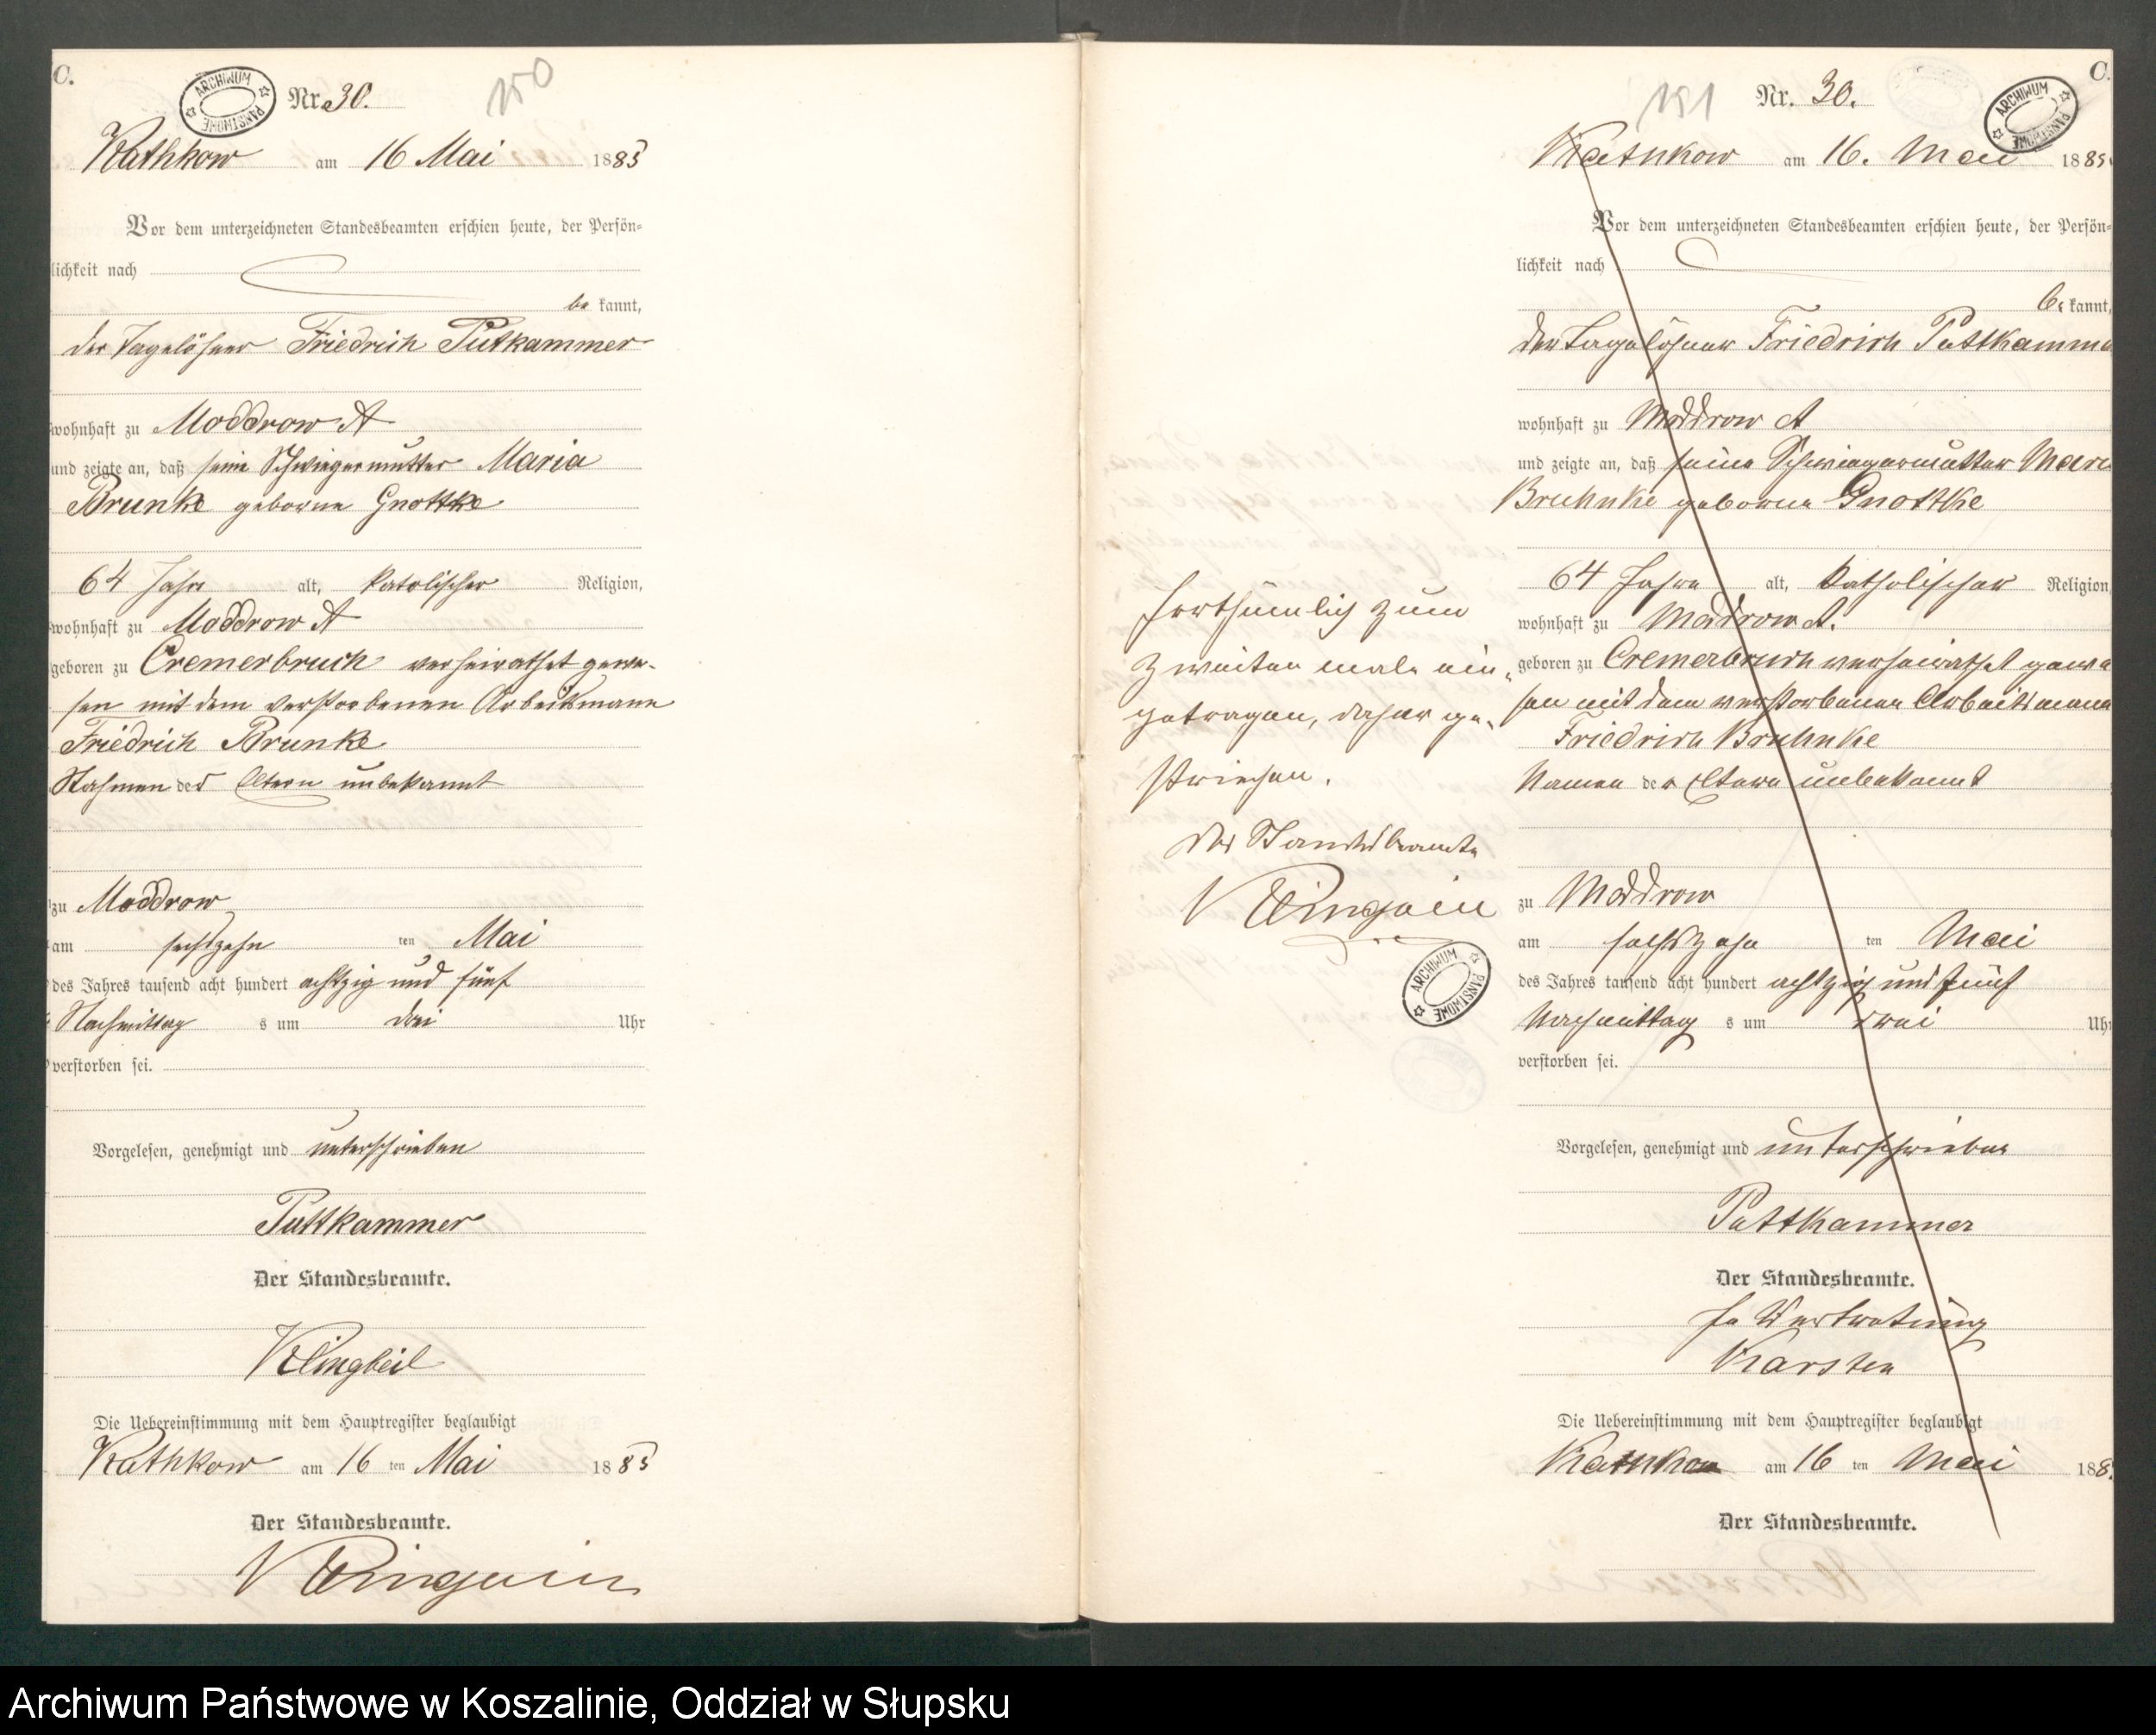 C.
ARCHIWUM PAŃSTWOWE
Nr. 30.
150
Kathkow am 16 Mai 1885
Vor dem unterzeichneten Standesbeamten erschien heute, der Persön-
lichkeit nach
be kannt,
der Tagelöhner Friedrich Putkammer
wohnhaft zu Moddrow A
und zeigte an, daß seine Schwiegermutter Maria
Brunke geborne Gnottke
64 Jahr alt, katolischer Religion,
wohnhaft zu Moddrow A
geboren zu Cremerbruch verheirathet gewe-
sen mit dem verstorbenen Arbeitsmann
Friedrich Brunke
Nahmen der Eltern unbekannt
zu Moddrow
am sechszehn ten Mai
des Jahres tausend acht hundert achtzig und fünf
Nachmittag s um drei Uhr
verstorben sei.
Vorgelesen, genehmigt und unterschrieben
Puttkammer
Der Standesbeamte.
Klingbeil
Die Uebereinstimmung mit dem Hauptregister beglaubigt
Kathkow am 16 ten Mai 1885
Der Standesbeamte.
C.
ARCHIWUM PAŃSTWOWE
Nr. 30.
151
Kathkow am 16. Mai 1885
Vor dem unterzeichneten Standesbeamten erschien heute, der Persön-
lichkeit nach
be kannt,
der Tagelöhner Friedrich Puttkamme
wohnhaft zu Moddrow A
und zeigte an, daß seine Schwiegermutter Mari
Bruhnke geborne Gnottke
64 Jahre alt, katholischer Religion,
wohnhaft zu Moddrow A.
geboren zu Cremerbruch verheirathet gewe
sen mit dem verstorbenen Arbeitsmann
Friedrich Bruhnke
Namen der Eltern unbekannt
zu Moddrow
am sechszehn ten Mai
des Jahres tausend acht hundert achtzig und fünf
Nachmittag s um drei Uhr
verstorben sei.
Vorgelesen, genehmigt und unterschrieben
Puttkammer
Der Standesbeamte.
In Vertretung
Karsten
Die Uebereinstimmung mit dem Hauptregister beglaubigt
Kathkow am 16 ten Mai 188
Der Standesbeamte.
Irrthümlich zum
zweiten male ein-
getragen, daher ge-
strichen.
Der Standesbeamte
ARCHIWUM PAŃSTWOWE
Archiwum Państwowe w Koszalinie, Oddział w Słupsku